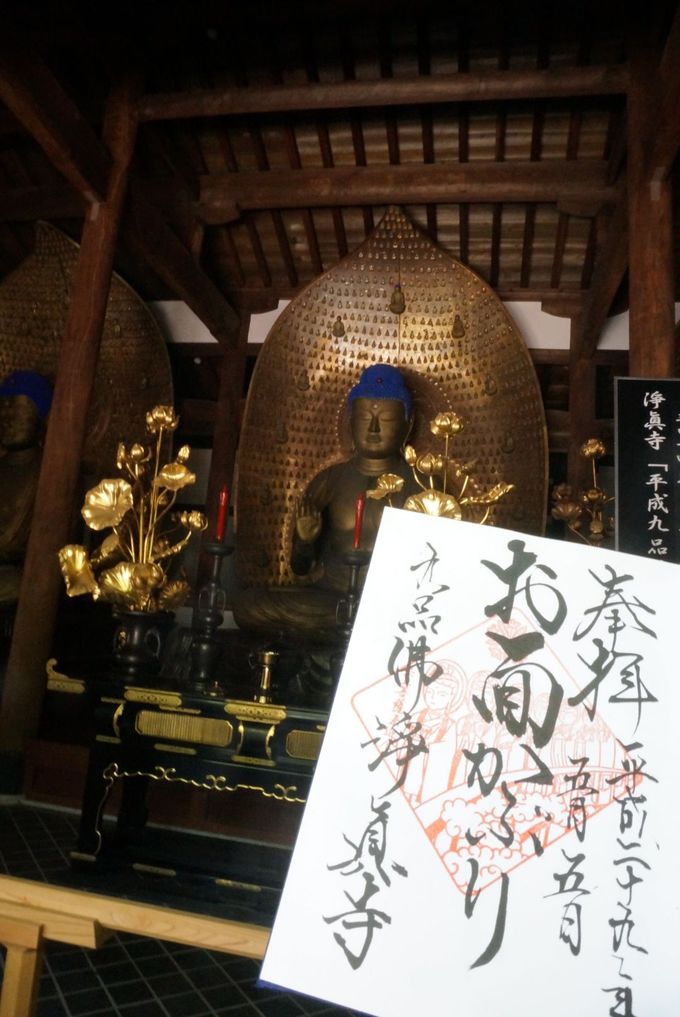 奉拝
平成二十九年
五月五日
お面かぶり
九品佛浄眞寺
淨眞寺「平成九品